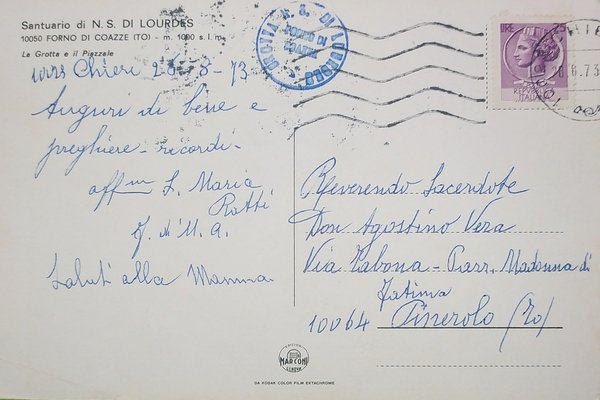 Santuario di N. S. DI LOURDES
10050 FORNO DI COAZZE (TO) - m. 1000 s. l. m.
La Grotta e il Piazzale
Chieri 26-8-73
Auguri di bene e
preghiere - ricordi -
aff. L. Maria
Ratti
F. di M. A.
Saluti alla Mamma
GROTTA N. S. DI LOURDES
FORNO DI
COAZZE
LIRE 25
REPUBBLICA
ITALIANA
CHIERI
.8.73
Reverendo Sacerdote
Don Agostino Vera
Via - Parr. Madonna di
Fatima
10064 Pinerolo (To)
EDIZIONI
MARCONI
GENOVA
DA KODAK COLOR FILM EKTACHROME